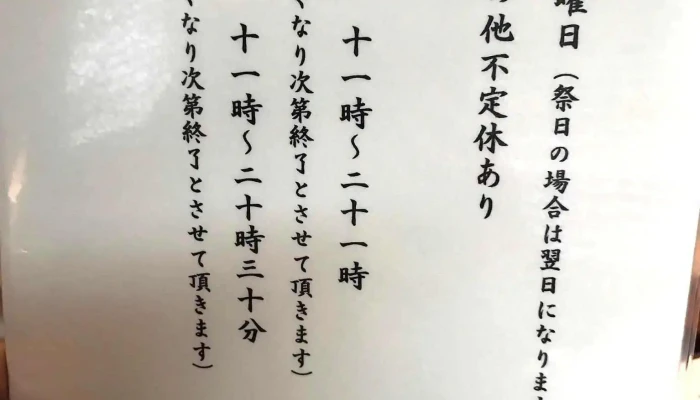 曜日(祭日の場合は翌日になりま
の他不定休あり
十一時～二十一時
くなり次第終了とさせて頂きます)
十一時～二十時三十分
くなり次第終了とさせて頂きます)